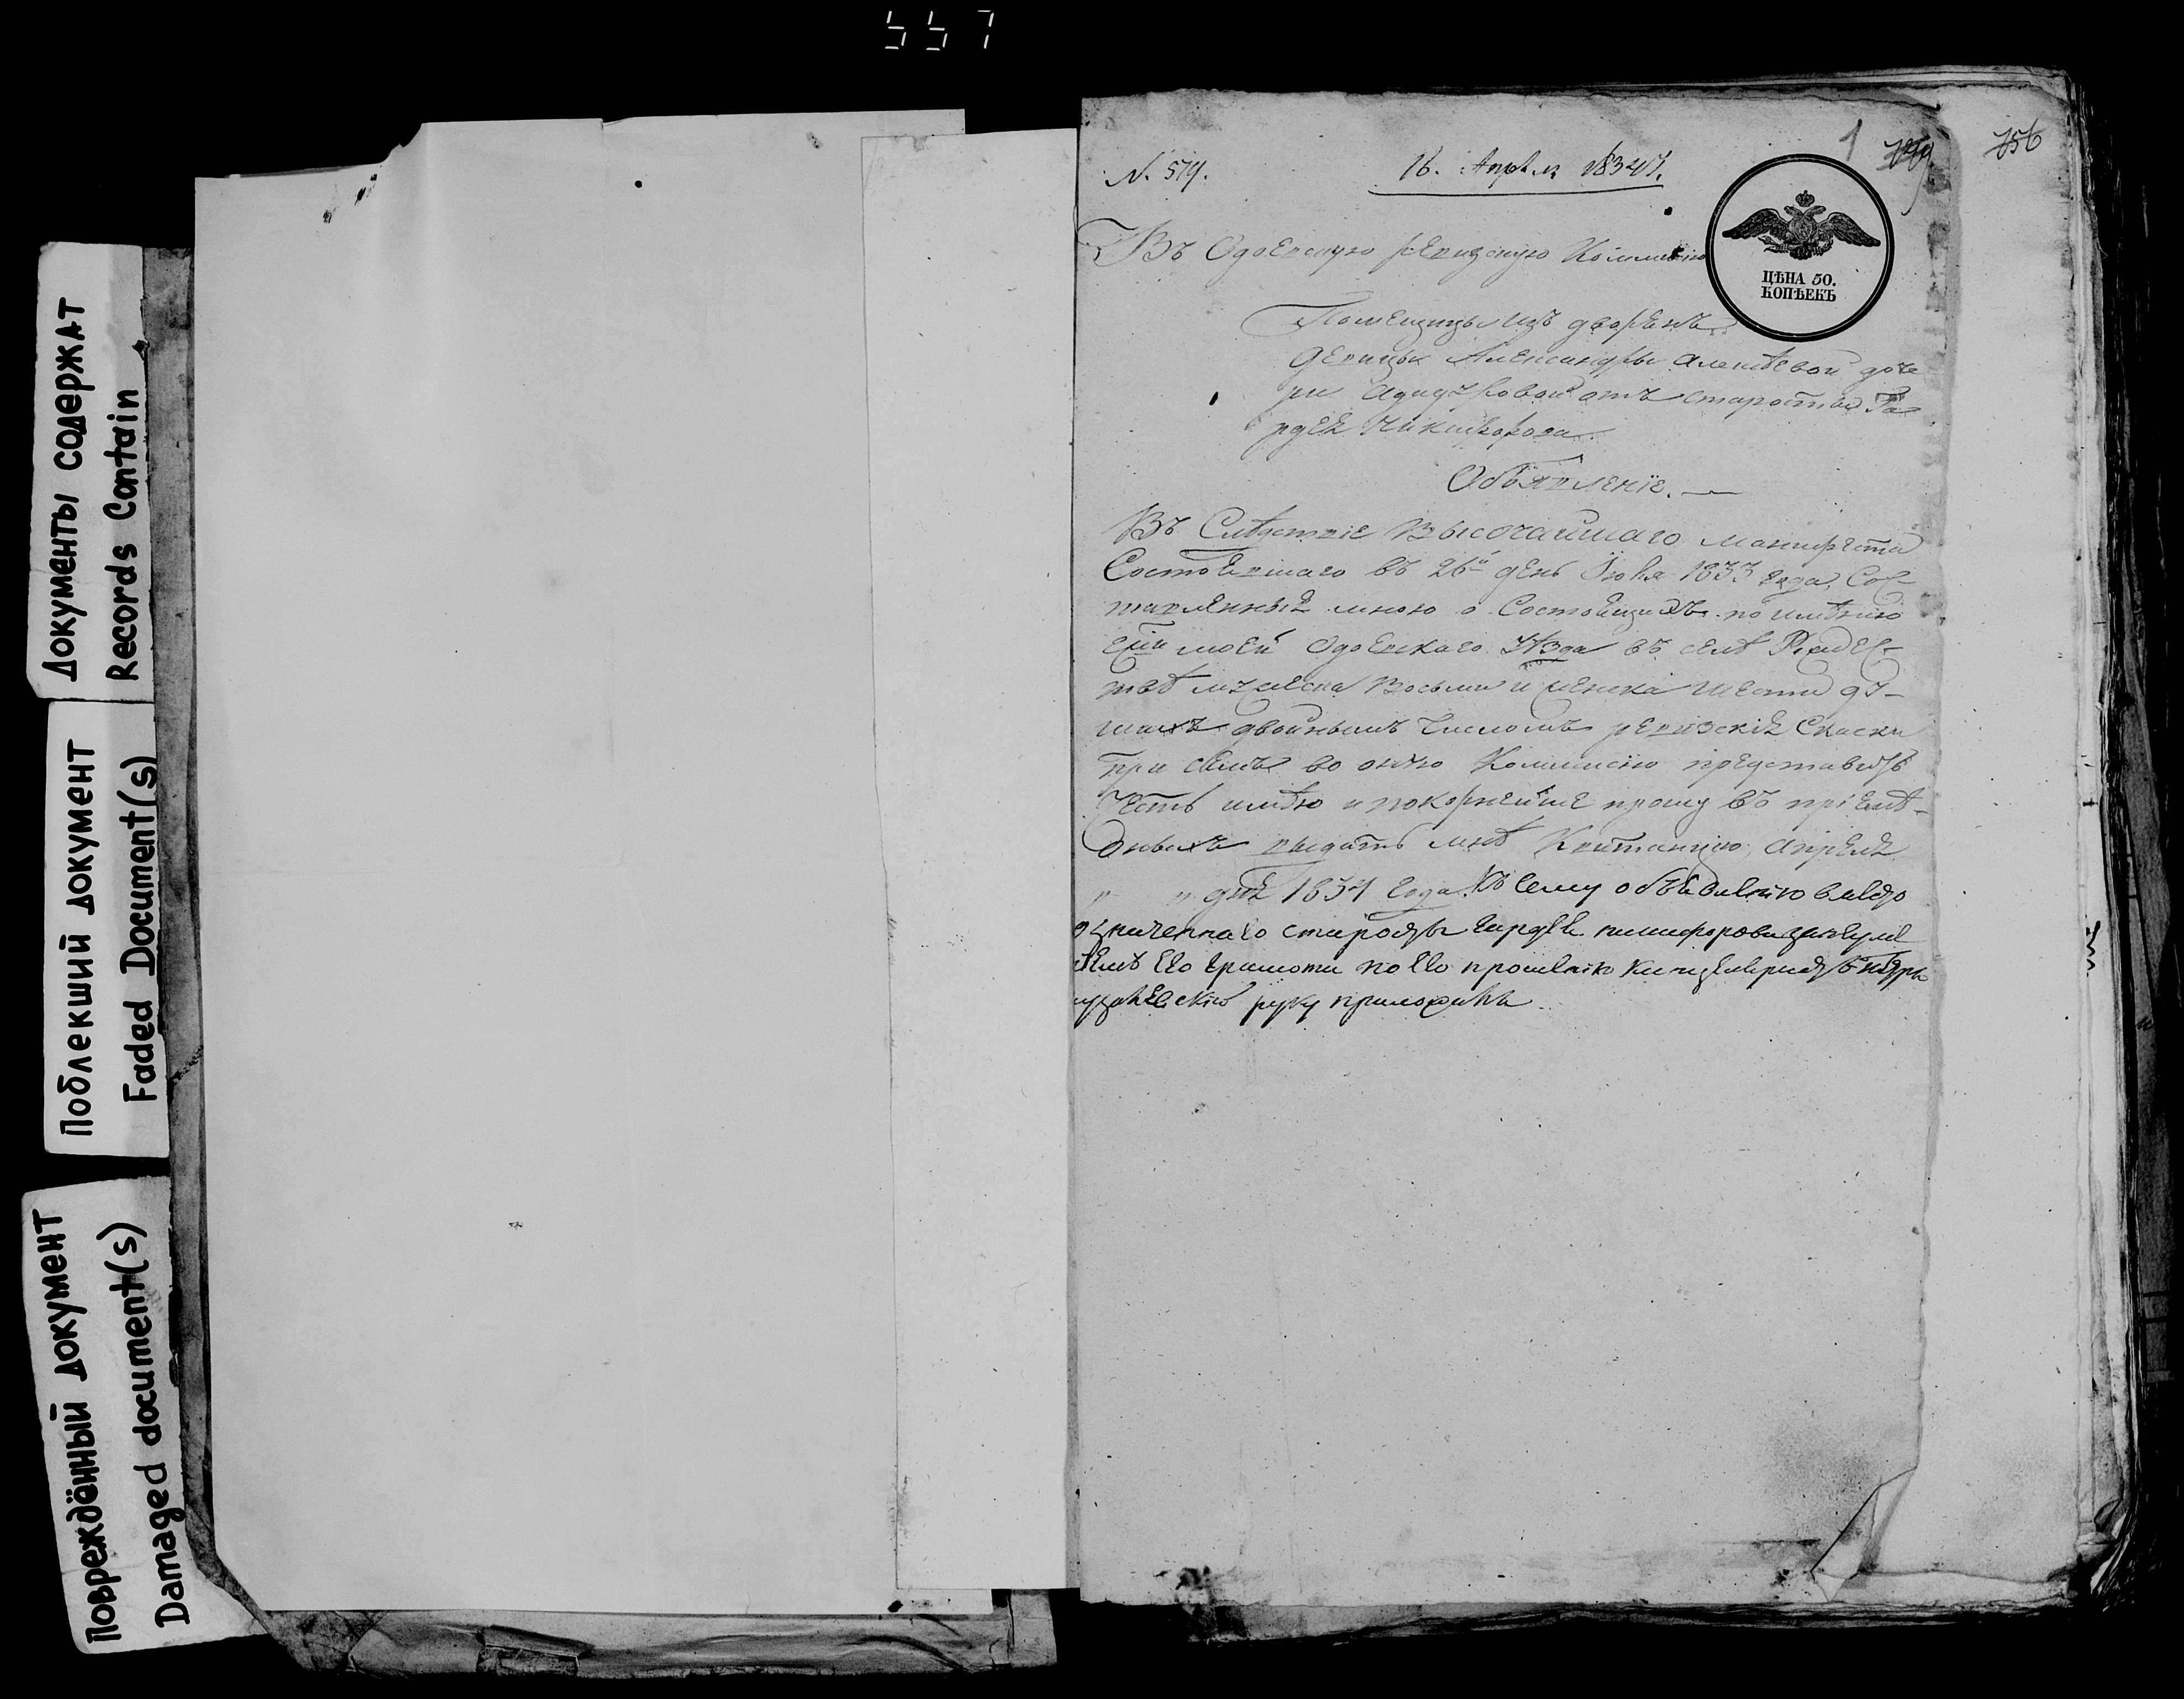 557
Документы содержат
Records Contain
Поблекший документ
Faded Document(s)
Повреждённый документ
Damaged document(s)
1
756
N. 579.
16. Апреля 1834.
ЦѢНА 50.
КОПѢЕКЪ
Въ Одоевскую ревизскую Коммисию
Помещицы изъ дворенъ
девицы Александры Алексѣевой доче
ри от старосты Га
рдея Никифорова
Объявленіе.
Въ Слѣдствие Высочайшаго манифеста
Состоевшаго въ 26й день Июня 1833 года, Сос
тавленные мною о Состоещихъ по имѣнию
ея моей Одоевскаго Уѣзда въ селѣ Рждес
твѣ мужеска восьми и женска шести ду
шахъ двойнымъ числомъ ревизские Скаски
При семъ во оную Коммисию представить
Честь имѣю и покорнейше прошу въ приемѣ
оныхъ выдать мнѣ Квитанцию, Апреля
" " дня 1834 года. Къ сему объевлению вместо
означеннаго старосты Гардея Никифорова за неуме
нием его грамоти по его прошению
руку приложилъ